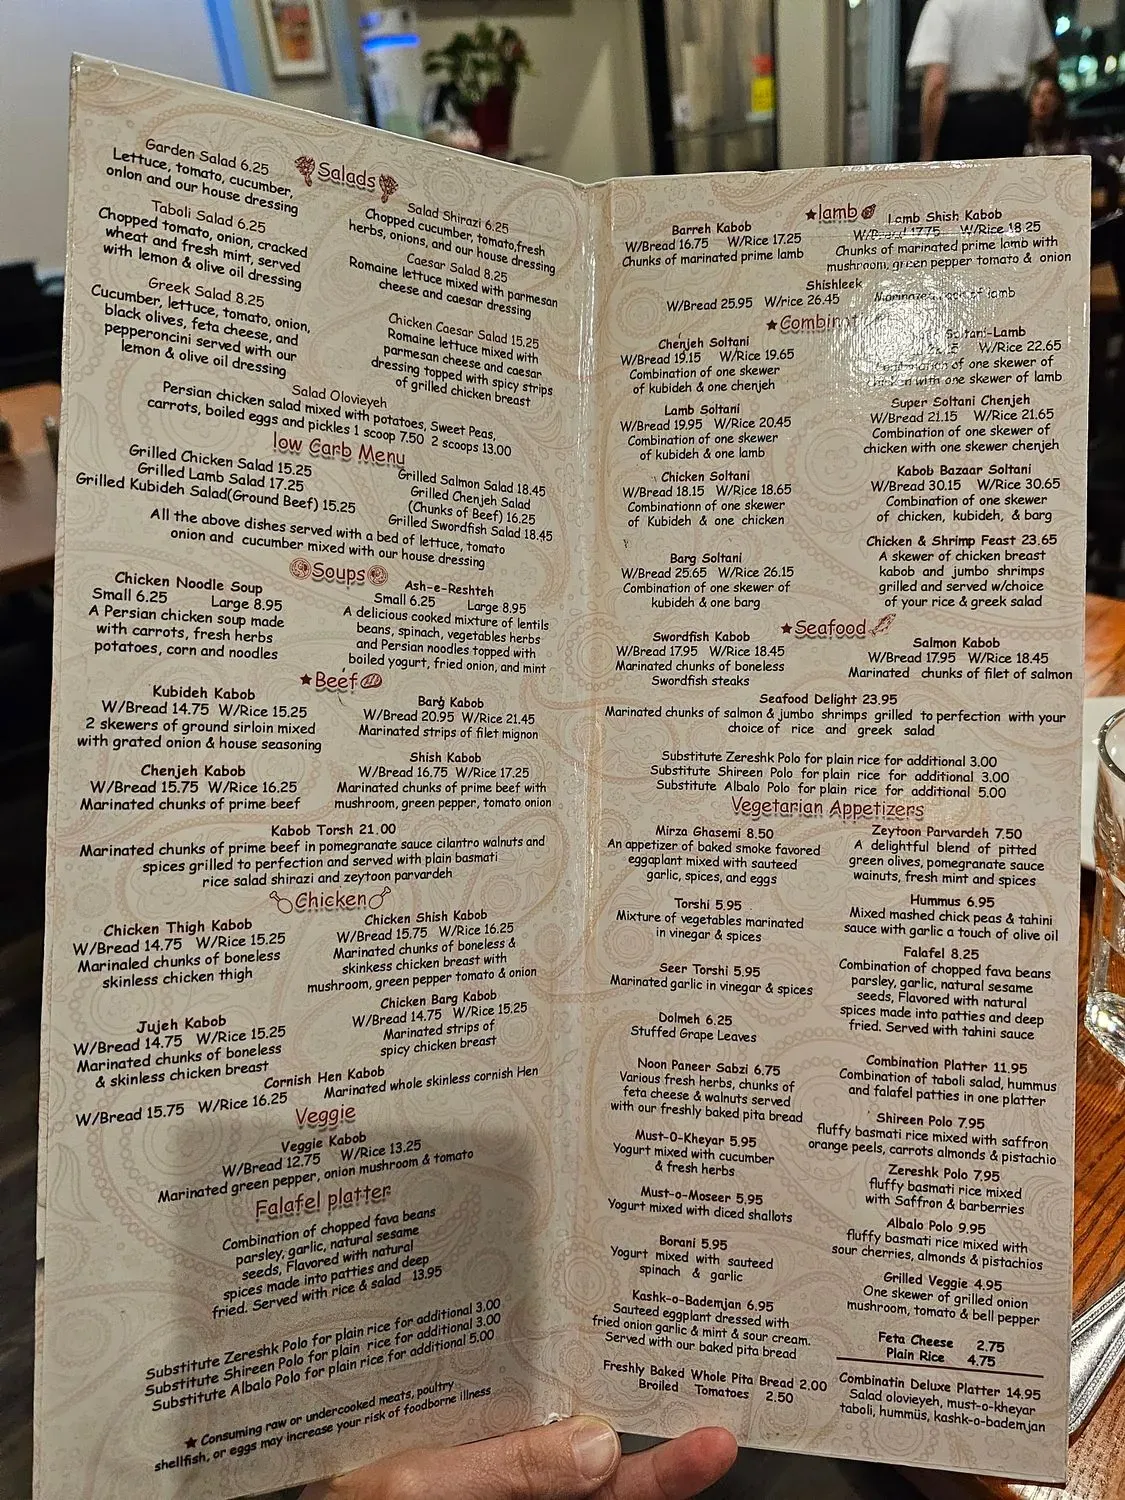 Salads
Garden Salad 6.25
Lettuce, tomato, cucumber,
onlon and our house dressing
Taboli Salad 6.25
Chopped tomato, onion, cracked
wheat and fresh mint, served
with lemon & olive oil dressing
Greek Salad 8.25
Cucumber, lettuce, tomato, onion,
black olives, feta cheese, and
pepperoncini served with our
lemon & olive oil dressing
Salad Shirazi 6.25
Chopped cucumber, tomato,fresh
herbs, onions, and our house dressing
Caesar Salad 8.25
Romaine lettuce mixed with parmesan
cheese and caesar dressing
Chicken Caesar Salad 15.25
Romaine lettuce mixed with
parmesan cheese and caesar
dressing topped with spicy strips
of grilled chicken breast
Salad Olovieyeh
Persian chicken salad mixed with potatoes, Sweet Peas,
carrots, boiled eggs and pickles 1 scoop 7.50 2 scoops 13.00
low Carb Menu
Grilled Chicken Salad 15.25
Grilled Lamb Salad 17.25
Grilled Kubideh Salad(Ground Beef) 15.25
Grilled Salmon Salad 18.45
Grilled Chenjeh Salad
(Chunks of Beef) 16.25
Grilled Swordfish Salad 18.45
All the above dishes served with a bed of lettuce, tomato
onion and cucumber mixed with our house dressing
Soups
Chicken Noodle Soup
Small 6.25 Large 8.95
A Persian chicken soup made
with carrots, fresh herbs
potatoes, corn and noodles
Ash-e-Reshteh
Small 6.25 Large 8.95
A delicious cooked mixture of lentils
beans, spinach, vegetables herbs
and Persian noodles topped with
boiled yogurt, fried onion, and mint
★Beef
Kubideh Kabob
W/Bread 14.75 W/Rice 15.25
2 skewers of ground sirloin mixed
with grated onion & house seasoning
Barg Kabob
W/Bread 20.95 W/Rice 21.45
Marinated strips of filet mignon
Chenjeh Kabob
W/Bread 15.75 W/Rice 16.25
Marinated chunks of prime beef
Shish Kabob
W/Bread 16.75 W/Rice 17.25
Marinated chunks of prime beef with
mushroom, green pepper, tomato onion
Kabob Torsh 21.00
Marinated chunks of prime beef in pomegranate sauce cilantro walnuts and
spices grilled to perfection and served with plain basmati
rice salad shirazi and zeytoon parvardeh
Chicken
Chicken Thigh Kabob
W/Bread 14.75 W/Rice 15.25
Marinaled chunks of boneless
skinless chicken thigh
Chicken Shish Kabob
W/Bread 15.75 W/Rice 16.25
Marinated chunks of boneless &
skinkess chicken breast with
mushroom, green pepper tomato & onion
Jujeh Kabob
W/Bread 14.75 W/Rice 15.25
Marinated chunks of boneless
& skinless chicken breast
Chicken Barg Kabob
W/Bread 14.75 W/Rice 15.25
Marinated strips of
spicy chicken breast
Cornish Hen Kabob
W/Bread 15.75 W/Rice 16.25 Marinated whole skinless cornish Hen
Veggie
Veggie Kabob
W/Bread 12.75 W/Rice 13.25
Marinated green pepper, onion mushroom & tomato
Falafel platter
Combination of chopped fava beans
parsley, garlic, natural sesame
seeds, Flavored with natural
spices made into patties and deep
fried. Served with rice & salad 13.95
Substitute Zereshk Polo for plain rice for additional 3.00
Substitute Shireen Polo for plain rice for additional 3.00
Substitute Albalo Polo for plain rice for additional 5.00
★ Consuming raw or undercooked meats, poultry
shellfish, or eggs may increase your risk of foodborne illness
★lamb
Barreh Kabob
W/Bread 16.75 W/Rice 17.25
Chunks of marinated prime lamb
Lamb Shish Kabob
W/Bread 17.75 W/Rice 18.25
Chunks of marinated prime lamb with
mushroom, green pepper tomato & onion
Shishleek
W/Bread 25.95 W/rice 26.45 Marinated rack of lamb
★Combinat
Chenjeh Soltani
W/Bread 19.15 W/Rice 19.65
Combination of one skewer
of kubideh & one chenjeh
Soltani-Lamb
W/Rice 22.65
Combination of one skewer of
chicken with one skewer of lamb
Lamb Soltani
W/Bread 19.95 W/Rice 20.45
Combination of one skewer
of kubideh & one lamb
Super Soltani Chenjeh
W/Bread 21.15 W/Rice 21.65
Combination of one skewer of
chicken with one skewer chenjeh
Chicken Soltani
W/Bread 18.15 W/Rice 18.65
Combinationn of one skewer
of Kubideh & one chicken
Kabob Bazaar Soltani
W/Bread 30.15 W/Rice 30.65
Combination of one skewer
of chicken, kubideh, & barg
Barg Soltani
W/Bread 25.65 W/Rice 26.15
Combination of one skewer of
kubideh & one barg
Chicken & Shrimp Feast 23.65
A skewer of chicken breast
kabob and jumbo shrimps
grilled and served w/choice
of your rice & greek salad
★Seafood
Swordfish Kabob
W/Bread 17.95 W/Rice 18.45
Marinated chunks of boneless
Swordfish steaks
Salmon Kabob
W/Bread 17.95 W/Rice 18.45
Marinated chunks of filet of salmon
Seafood Delight 23.95
Marinated chunks of salmon & jumbo shrimps grilled to perfection with your
choice of rice and greek salad
Substitute Zereshk Polo for plain rice for additional 3.00
Substitute Shireen Polo for plain rice for additional 3.00
Substitute Albalo Polo for plain rice for additional 5.00
Vegetarian Appetizers
Mirza Ghasemi 8.50
An appetizer of baked smoke favored
eggplant mixed with sauteed
garlic, spices, and eggs
Torshi 5.95
Mixture of vegetables marinated
in vinegar & spices
Seer Torshi 5.95
Marinated garlic in vinegar & spices
Dolmeh 6.25
Stuffed Grape Leaves
Noon Paneer Sabzi 6.75
Various fresh herbs, chunks of
feta cheese & walnuts served
with our freshly baked pita bread
Must-O-Kheyar 5.95
Yogurt mixed with cucumber
& fresh herbs
Must-o-Moseer 5.95
Yogurt mixed with diced shallots
Borani 5.95
Yogurt mixed with sauteed
spinach & garlic
Kashk-o-Bademjan 6.95
Sauteed eggplant dressed with
fried onion garlic & mint & sour cream.
Served with our baked pita bread
Freshly Baked Whole Pita Bread 2.00
Broiled Tomatoes 2.50
Zeytoon Parvardeh 7.50
A delightful blend of pitted
green olives, pomegranate sauce
wainuts, fresh mint and spices
Hummus 6.95
Mixed mashed chick peas & tahini
sauce with garlic a touch of olive oil
Falafel 8.25
Combination of chopped fava beans
parsley, garlic, natural sesame
seeds, Flavored with natural
spices made into patties and deep
fried. Served with tahini sauce
Combination Platter 11.95
Combination of taboli salad, hummus
and falafel patties in one platter
Shireen Polo 7.95
fluffy basmati rice mixed with saffron
orange peels, carrots almonds & pistachio
Zereshk Polo 7.95
fluffy basmati rice mixed
with Saffron & barberries
Albalo Polo 9.95
fluffy basmati rice mixed with
sour cherries, almonds & pistachios
Grilled Veggie 4.95
One skewer of grilled onion
mushroom, tomato & bell pepper
Feta Cheese 2.75
Plain Rice 4.75
Combinatin Deluxe Platter 14.95
Salad olovieyeh, must-o-kheyar
taboli, hummüs, kashk-o-bademjan